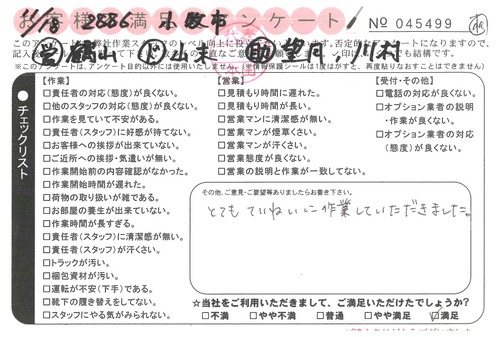 11/18 2886 小牧市
お客様満足アンケート
No 045499
営 鶴山 ド 山末 助 望月、川村
※このアンケートは、アンケート目的以外には使用いたしません。
チェックリスト
【作業】
□責任者の対応(態度)が良くない。
□他のスタッフの対応(態度)が良くない。
□作業を見ていて不安がある。
□責任者(スタッフ)に好感が持てない。
□お客様への挨拶が出来ていない。
□ご近所への挨拶・気遣いが無い。
□作業開始前の内容確認がなかった。
□作業開始時間が遅れた。
□荷物の取り扱いが雑である。
□お部屋の養生が出来ていない。
□作業時間が長すぎる。
□責任者(スタッフ)に清潔感が無い。
□責任者(スタッフ)が汗くさい。
□トラックが汚い。
□梱包資材が汚い。
□運転が不安(下手)である。
□靴下の履き替えをしてない。
□スタッフにやる気がみられない。
【営業】
□見積もり時間に遅れた。
□見積もり時間が長い。
□営業マンに清潔感が無い。
□営業マンが煙草くさい。
□営業マンが汗くさい。
□営業態度が良くない。
□営業の説明と作業が一致してない。
【受付・その他】
□電話の対応が良くない。
□オプション業者の説明・作業が良くない。
□オプション業者の対応(態度)が良くない。
その他、ご意見・ご要望等ありましたらお書き下さい。
とてもていねいに作業していただきました。
☆当社をご利用いただきまして、ご満足いただけたでしょうか?
□不満 □やや不満 □普通 □やや満足 ☑満足